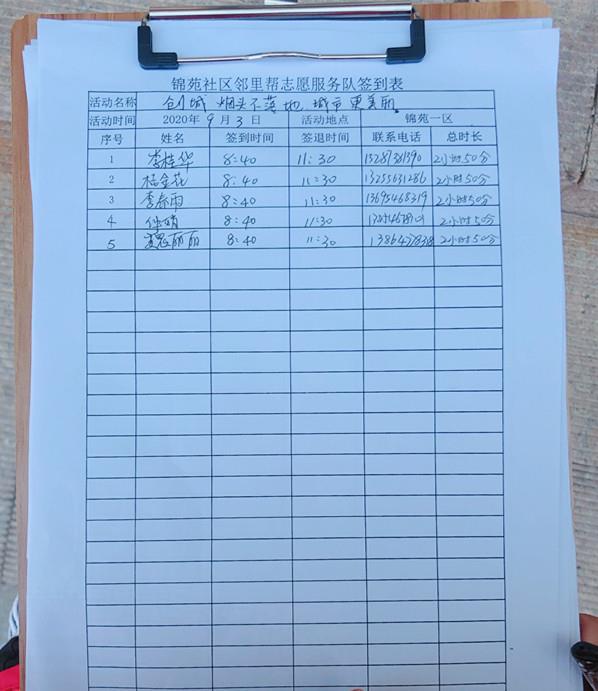 锦苑社区邻里帮志愿服务队签到表
活动名称 创城 烟头不落地,城市更美丽
活动时间 2020年9月3日 活动地点 锦苑一区
序号 姓名 签到时间 签退时间 联系电话 总时长
1 李桂华 8:40 11:30 2小时50分
2 金花 8:40 11:30 13255631286 2小时50分
3 李春雨 8:40 11:30 13695468319 2小时50分
4 8:40 11:30 2小时50分
5 丽丽 8:40 11:30 2小时50分